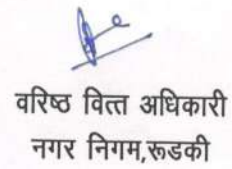 वरिष्ठ वित्त अधिकारी
नगर निगम,रूडकी